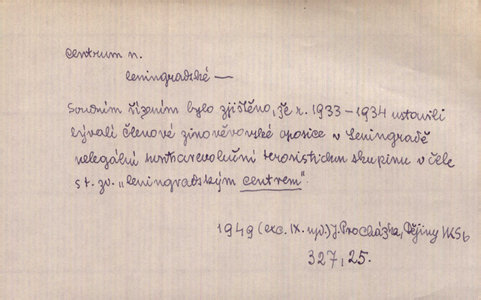 centrum n.
leningradské —
Soudním řízením bylo zjištěno, že r. 1933–1934 ustavili
bývalí členové zinovévovské oposice v Leningradě
nelegální kontrarevoluční teroristickou skupinu v čele
s t. zv. „leningradským centrem".
1949 (exc. IX. np.) J. Procházka, Dějiny VKSb
327, 25.